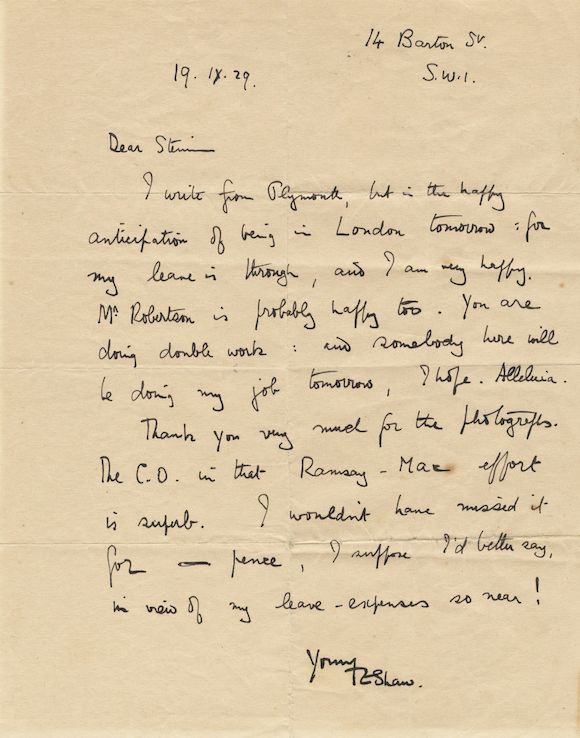 14 Barton St.
S.W.1.
19. IX. 29.
Dear Stemin
I write from Plymouth, but in the happy
anticipation of being in London tomorrow : for
my leave is through, and I am very happy.
Mr Robertson is probably happy too. You are
doing double work : and somebody here will
be doing my job tomorrow, I hope. Alleluia.
Thank you very much for the photographs.
The C.O. in that Ramsay-Mac effort
is superb. I wouldn't have missed it
for — pence, I suppose I'd better say,
in view of my leave-expenses so near!
Yours
TEShaw.